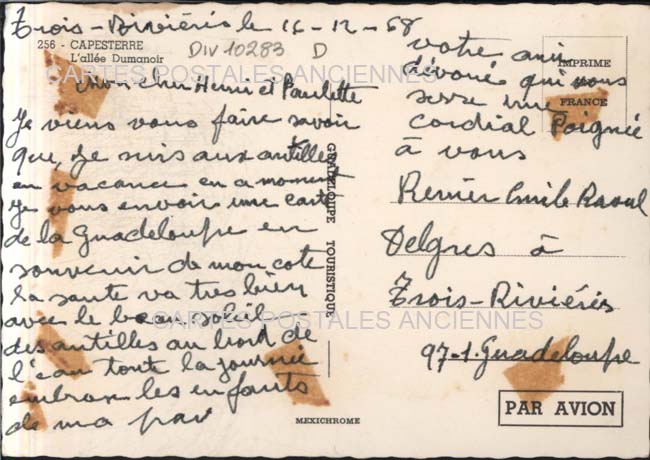 Trois-Rivières le 16-12-68
256 - CAPESTERRE
L'allée Dumanoir
DIV 10283 D
CARTES POSTALES ANCIENNES
Mon cher Henri et Paulette
Je viens vous faire savoir
que, Je suis aux antilles
en vacance en a moment
Je vous envoir une carte
de la Guadeloupe en
souvenir de mon cote
la sante va tres bien
avec le beau soleil
des antilles au bord de
l'eau toute la journée
embrass les enfants
de ma par
GUADELOUPE TOURISTIQUE
MEXICHROME
votre ami
dévoué qui vous
serre une
cordial Poignée
à vous
IMPRIME
FRANCE
Renier Emile Raoul
Delgres à
Trois-Rivières
97-1. Guadeloupe
CARTES POSTALES ANCIENNES
PAR AVION